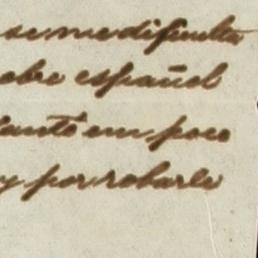 se me dificulta
obe español
lanté um poco
y por robarle